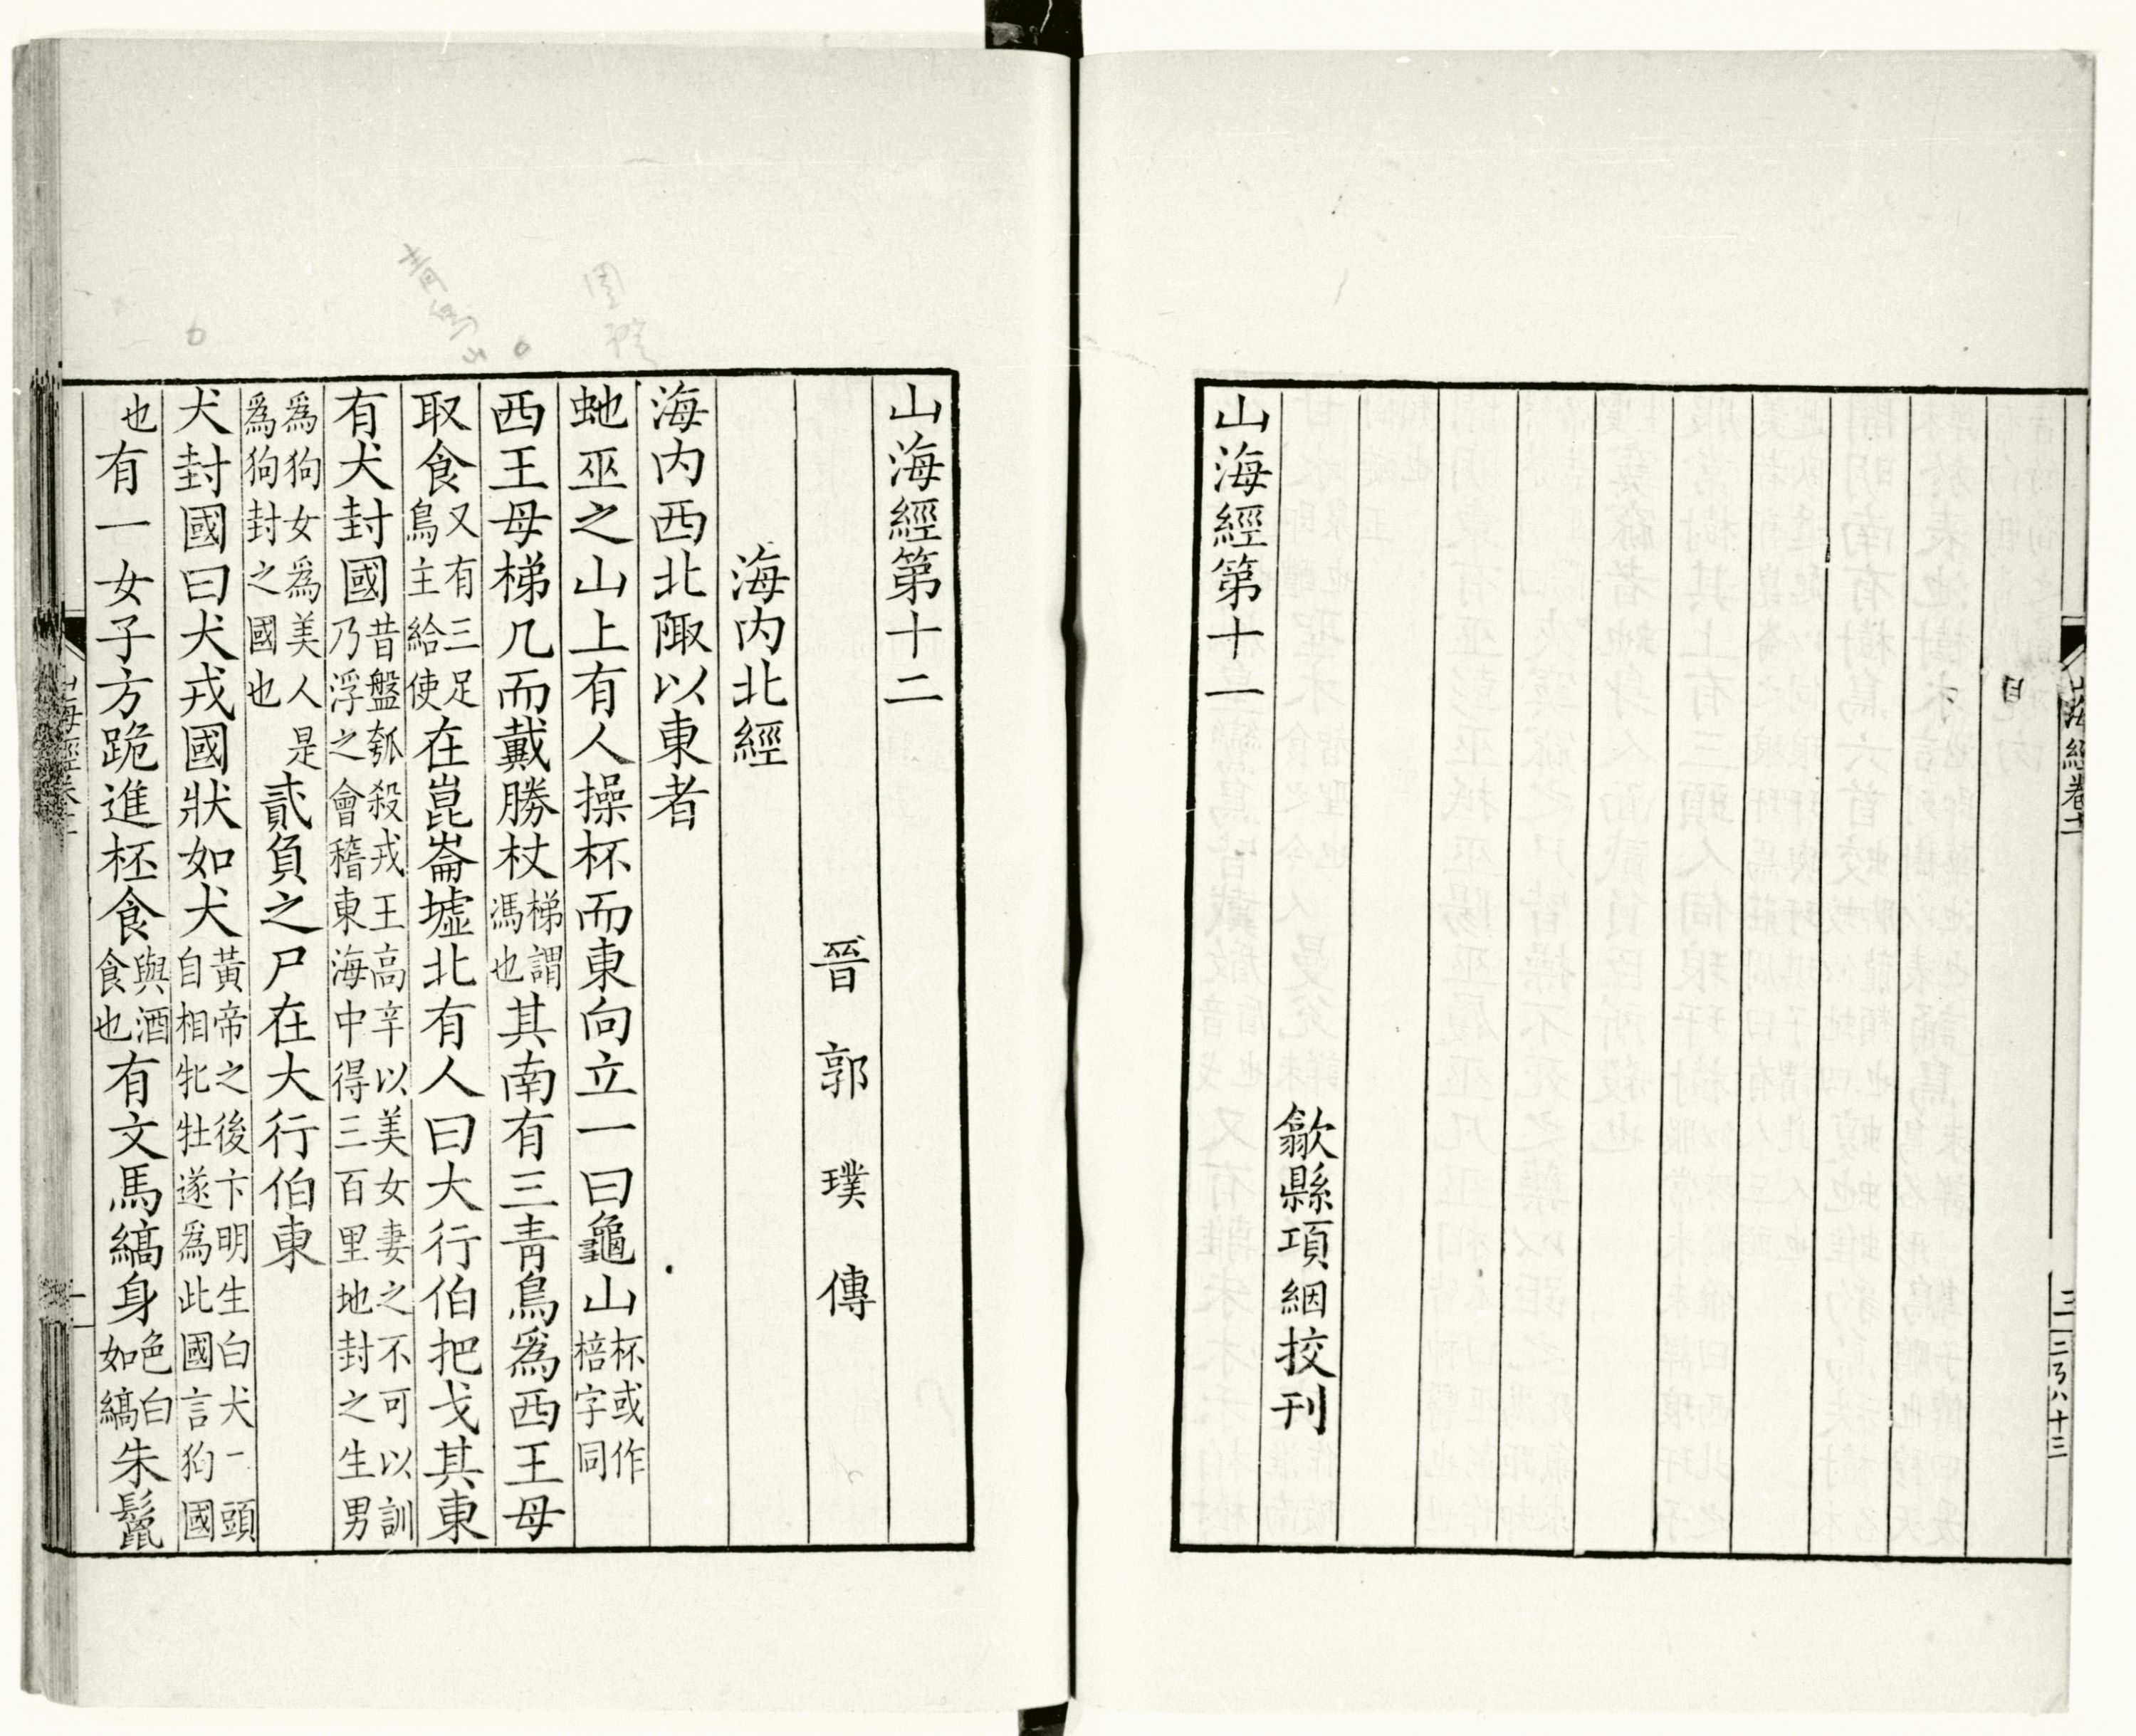 山海經第十一
歙縣項絪挍刊
山海經第十二
晉郭璞傳
海内北經
海内西北陬以東者
虵巫之山上有人操杯而東向立一曰龜山杯或作棓字同
西王母梯几而戴勝杖梯謂馮也其南有三青鳥爲西王母
取食又有三足鳥主給使在崑崙墟北有人曰大行伯把戈其東
有犬封國昔盤瓠殺戎王高辛以美女妻之不可以訓乃浮之會稽東海中得三百里地封之生男
爲狗女爲美人是爲狗封之國也貳負之尸在大行伯東
犬封國曰犬戎國狀如犬黃帝之後卞明生白犬二頭自相牝牡遂爲此國言狗國
也有一女子方跪進柸食與酒食也有文馬縞身色白如縞朱鬣